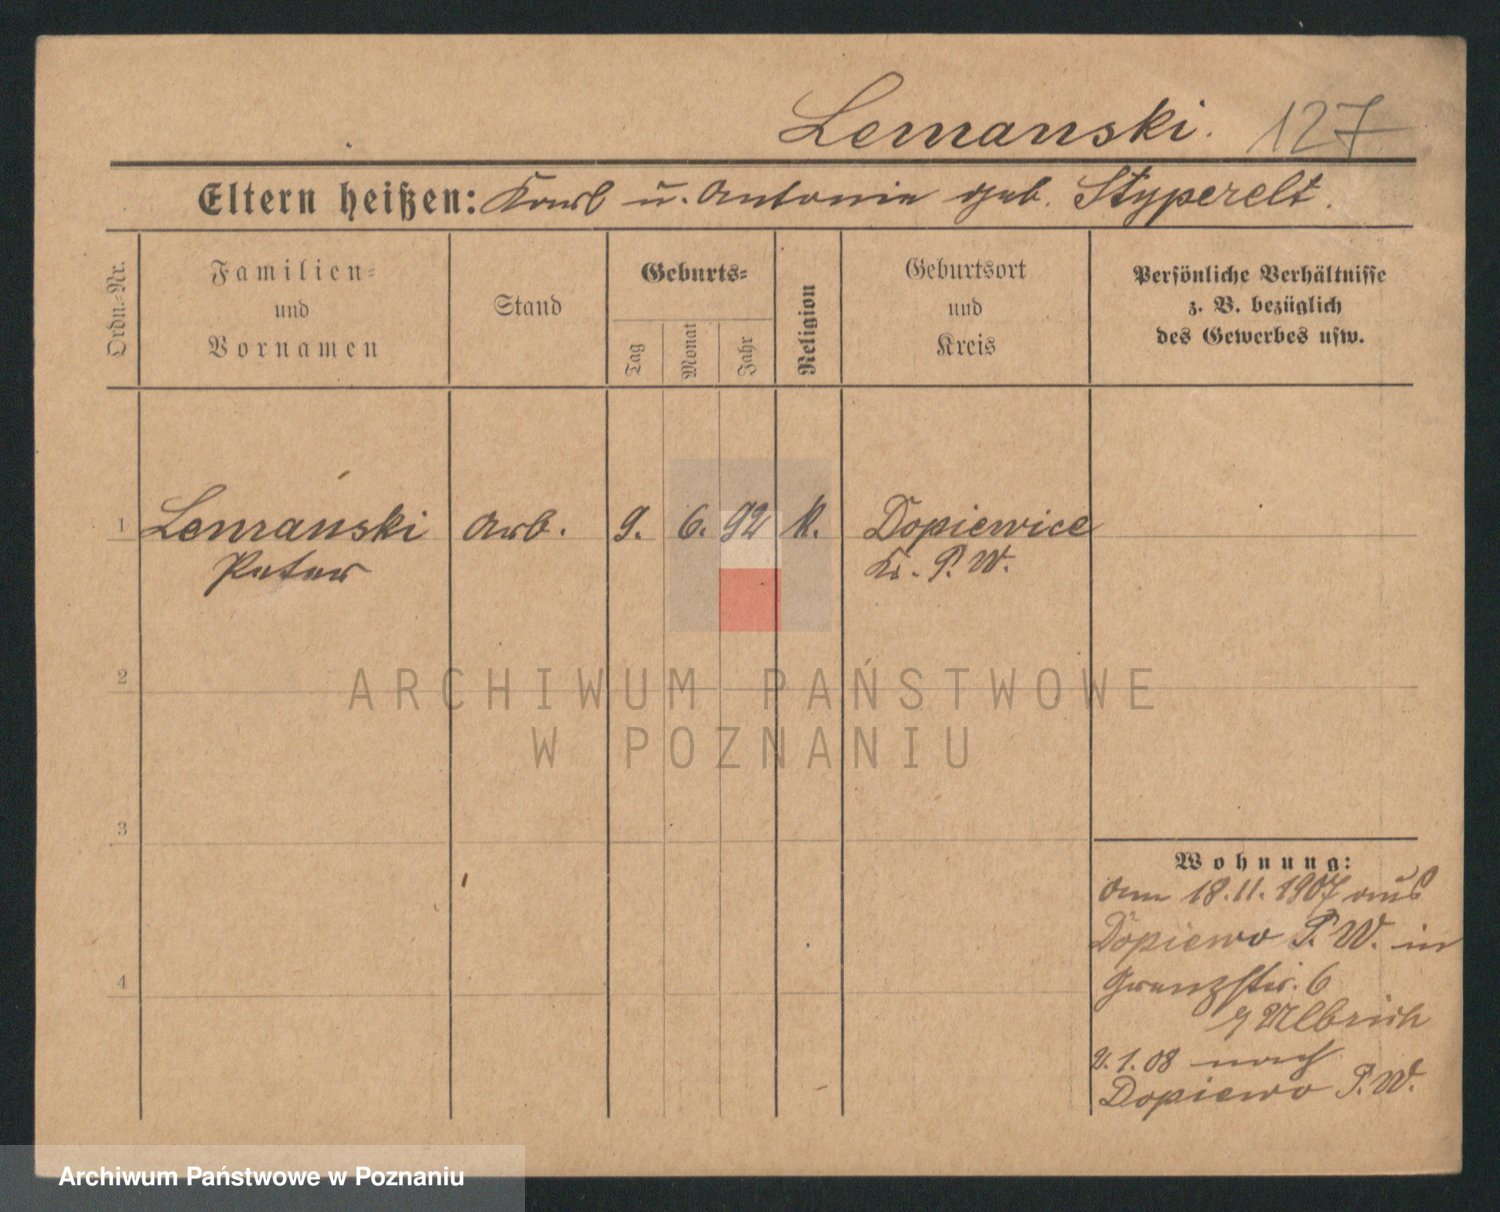 Lemanski. 127
Eltern heißen: Karl u. Antonie geb. Styperelt.
Ordn.-Nr.
Familien-
und
Vornamen
Stand
Geburts-
Tag
Monat
Jahr
Religion
Geburtsort
und
Kreis
Persönliche Verhältnisse
z. B. bezüglich
des Gewerbes usw.
1 Lemański Arb. 9. 6. 92 k. Dopiewice
Peter Kr. P. W.
2
ARCHIWUM PAŃSTWOWE
W POZNANIU
3
Wohnung:
am 18.11.1907 aus
Dopiewo P. W. in
4
Grenzstr. 6
Ulbrich
2.1.08 nach
Dopiewo P. W.
Archiwum Państwowe w Poznaniu